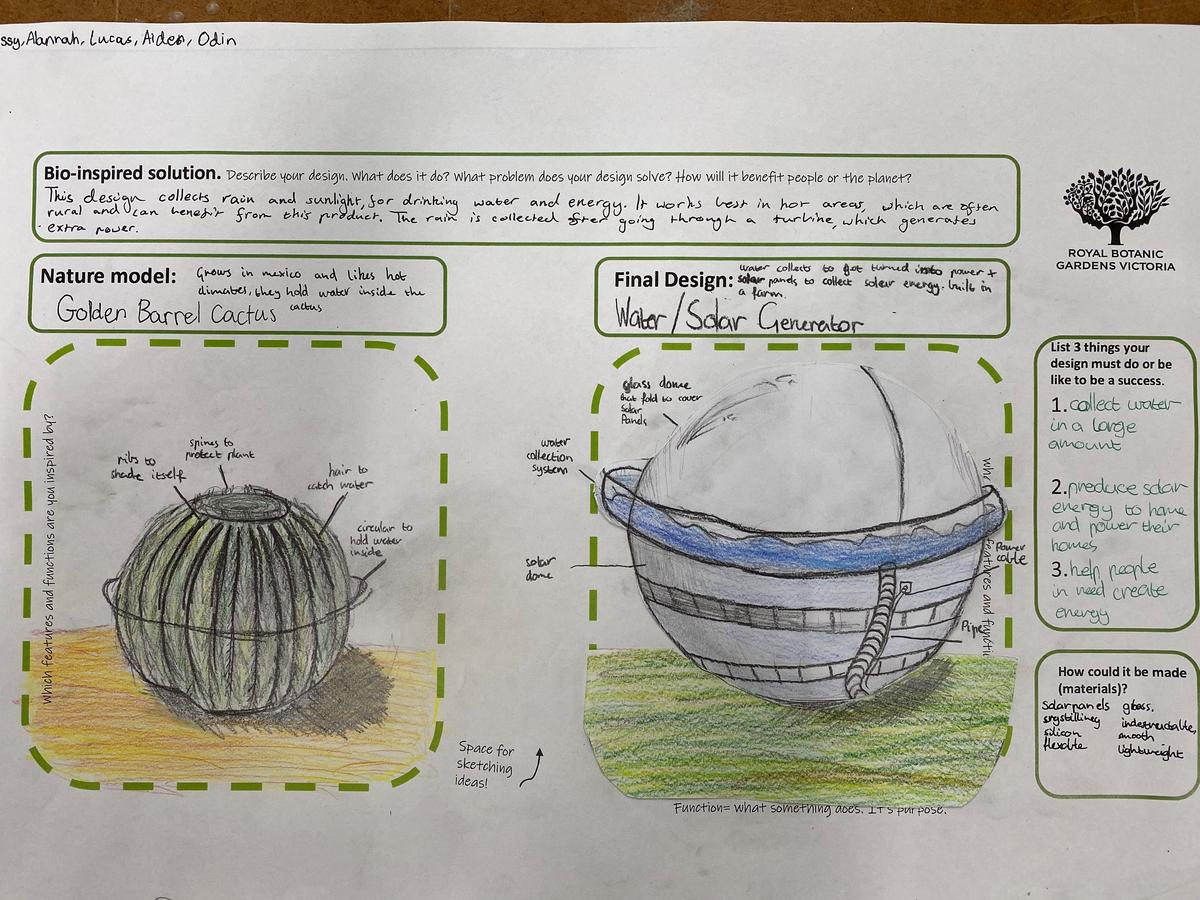 ssy, Alannah, Lucas, Aiden, Odin
Bio-inspired solution. Describe your design. What does it do? What problem does your design solve? How will it benefit people or the planet?
This design collects rain and sunlight, for drinking water and energy. It works best in hot areas, which are often
rural and can benefit from this product. The rain is collected after going through a turbine, which generates
extra power.
ROYAL BOTANIC
GARDENS VICTORIA
Nature model: Grows in mexico and likes hot
climates, they hold water inside the
cactus
Golden Barrel Cactus
Final Design: water collects to get turned into power +
solar panels to collect solar energy. built in
a farm.
Water/Solar Generator
Which features and functions are you inspired by?
ribs to
shade itself
spines to
protect plant
hair to
catch water
circular to
hold water
inside
Space for
sketching
ideas!
glass dome
that fold to cover
Solar
Panels
water
collection
system
solar
dome
Power
cable
Pipe
features and functi
Function= what something does. It's purpose.
List 3 things your
design must do or be
like to be a success.
1. collect water
in a large
amount
2. produce solar
energy to home
and power their
homes
3. help people
in need create
energy
How could it be made
(materials)?
Solar panels
silicon
flexible
glass,
smooth
lightweight